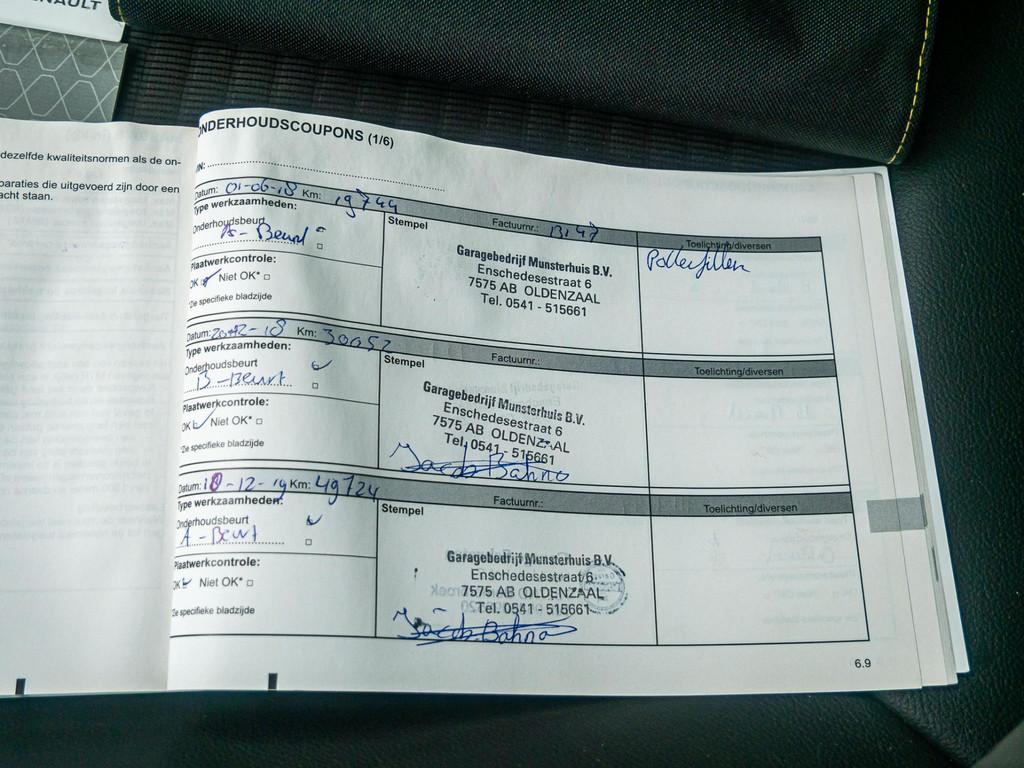 NAULT
dezelfde kwaliteitsnormen als de on-
paraties die uitgevoerd zijn door een
acht staan.
ONDERHOUDSCOUPONS (1/6)
Datum: 01-06-18 Km: 19744
Factuurnr.:
Type werkzaamheden:
Stempel
Toelichting/diversen
Onderhoudsbeurt
Beurt
Pollenfilter
Garagebedrijf Munsterhuis B.V.
Enschedesestraat 6
7575 AB OLDENZAAL
Tel. 0541 - 515661
Plaatwerkcontrole:
OK Niet OK*
*Zie specifieke bladzijde
Datum: 18 Km: 30052
Factuurnr.:
Type werkzaamheden:
Stempel
Toelichting/diversen
Onderhoudsbeurt
B-Beurt
Garagebedrijf Munsterhuis B.V.
Enschedesestraat 6
7575 AB OLDENZAAL
Tel. 0541 - 515661
Jacob Bahno
Plaatwerkcontrole:
OK Niet OK*
*Zie specifieke bladzijde
Datum: 10-12-19 Km: 49724
Factuurnr.:
Type werkzaamheden:
Stempel
Toelichting/diversen
Onderhoudsbeurt
A-Beurt
Garagebedrijf Munsterhuis B.V.
Enschedesestraat 6
7575 AB OLDENZAAL
Tel. 0541 - 515661
Jacob Bahno
Plaatwerkcontrole:
OK Niet OK*
*Zie specifieke bladzijde
6.9